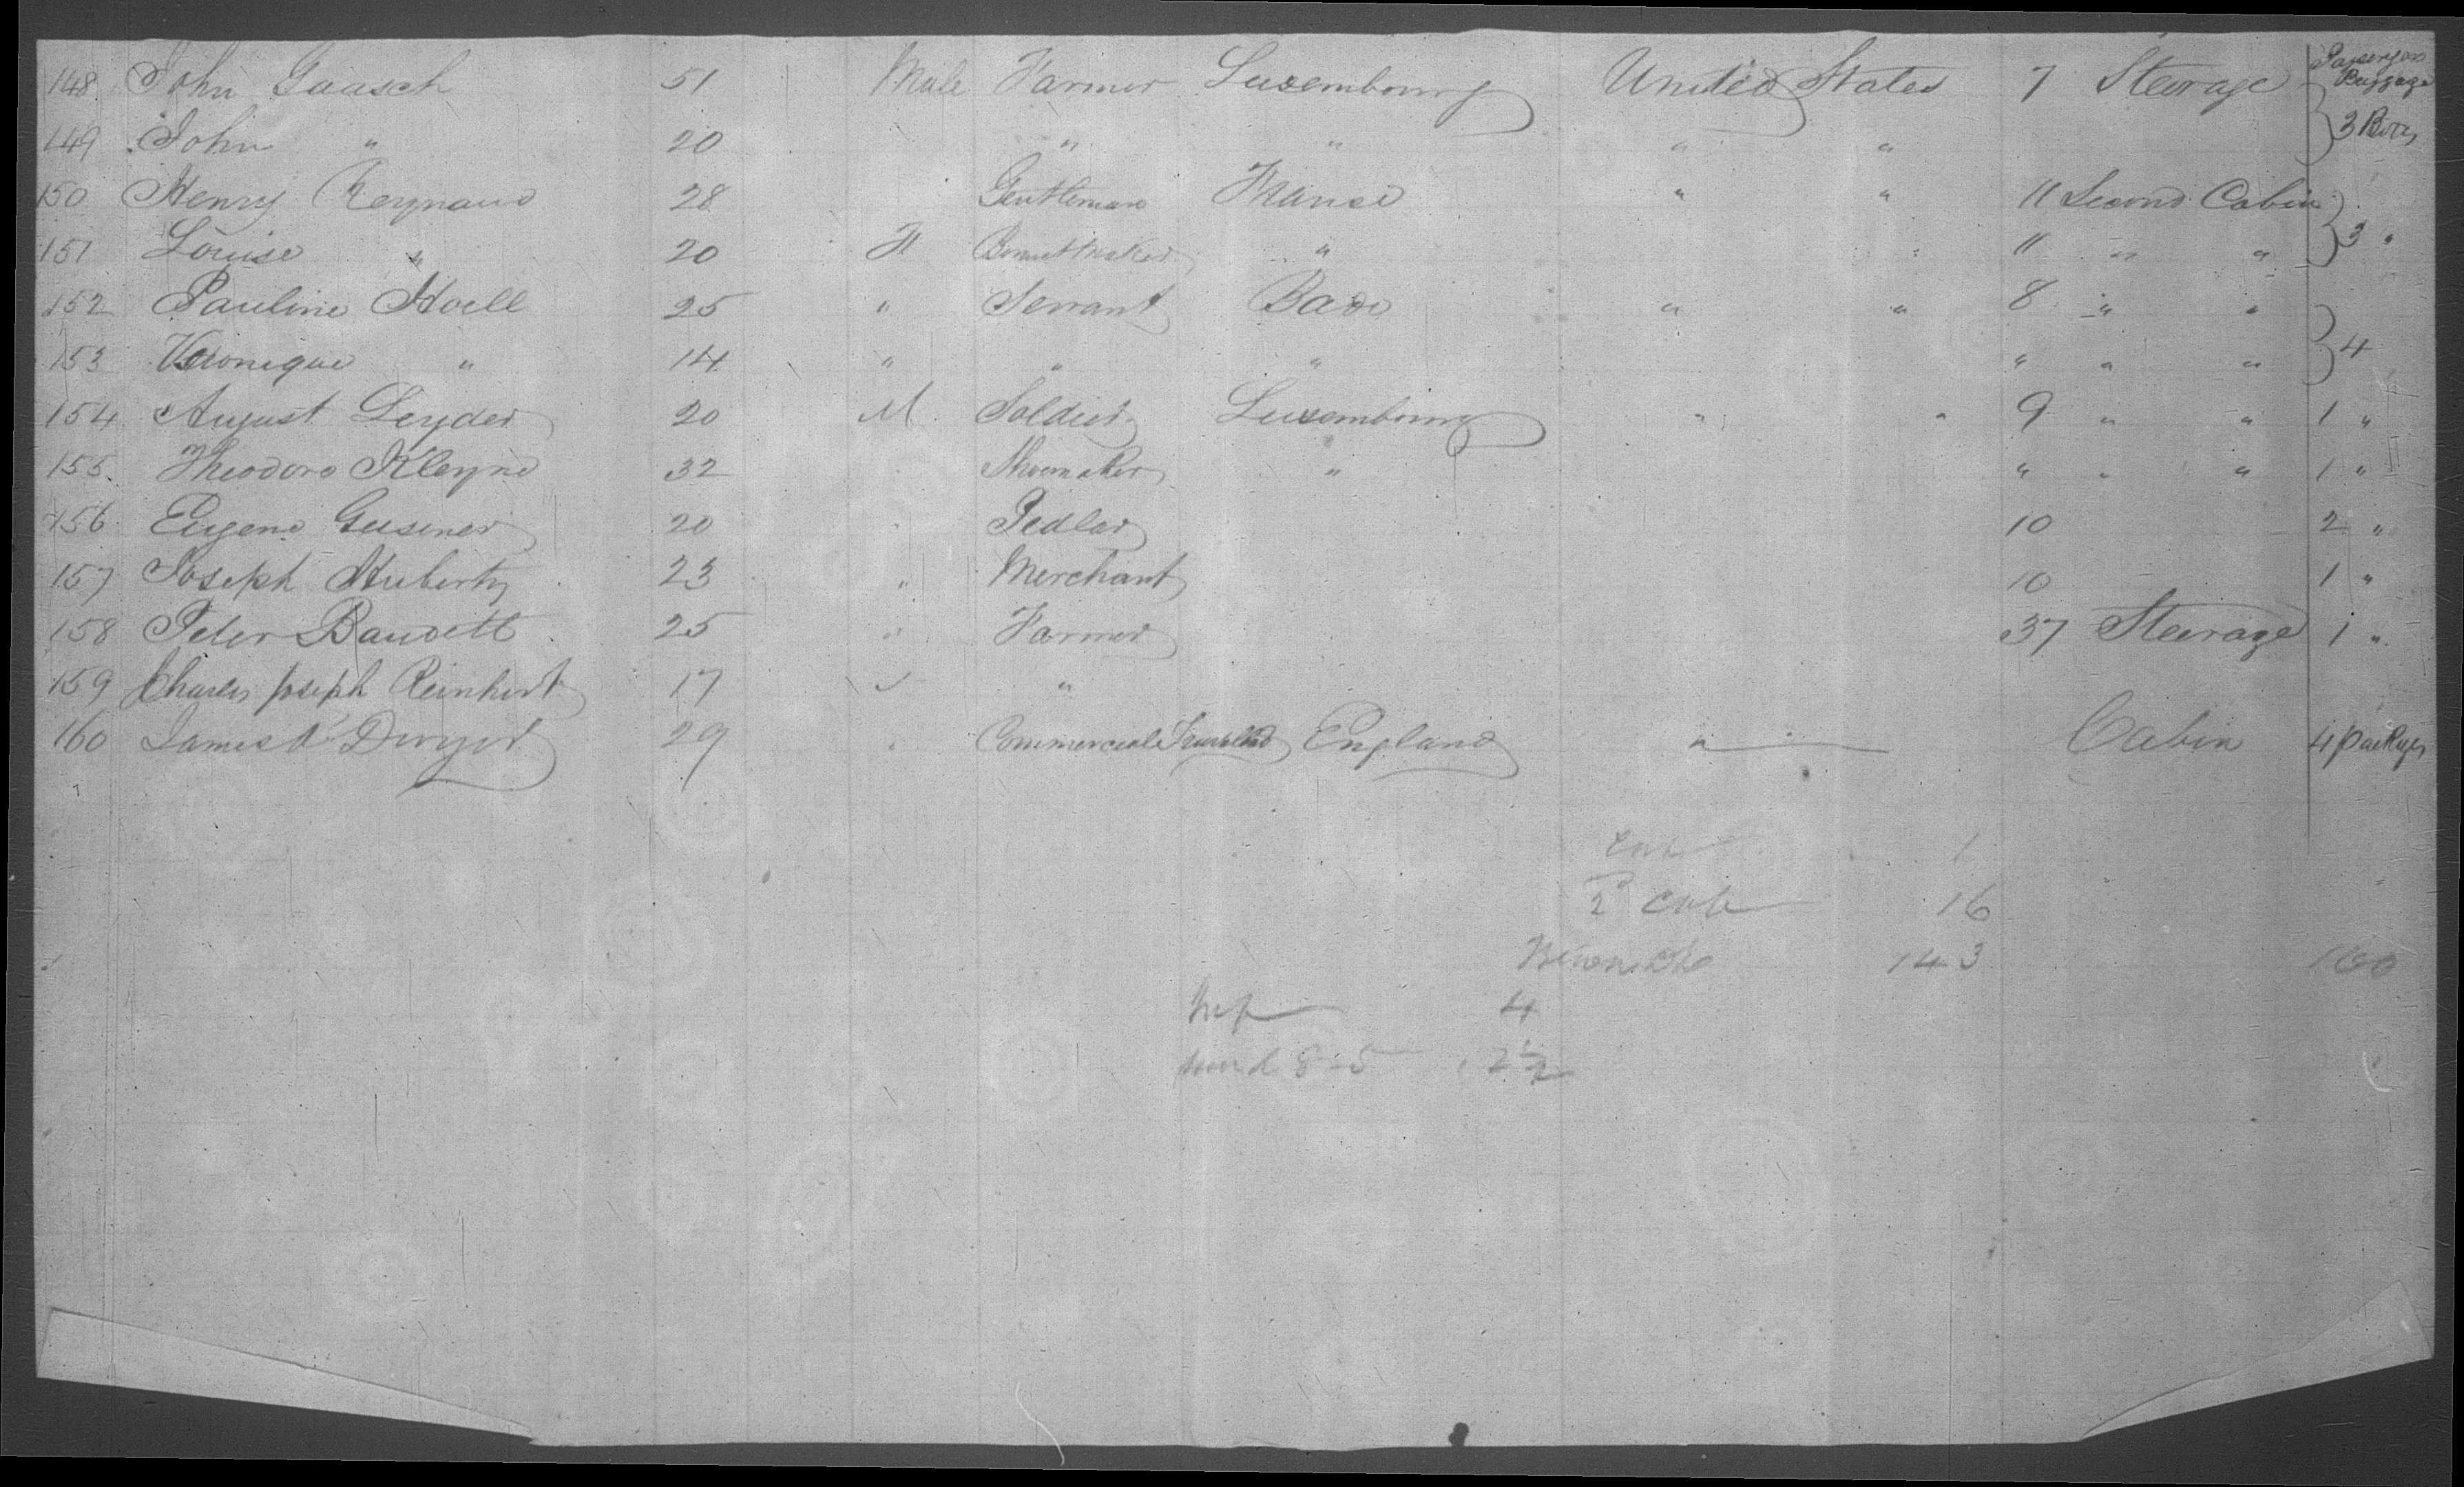 Passengers
Baggage
148 John Gaasch 51 Male Farmer Luxembourg United States 7 Steerage
149 John " 20 " " " " } 3 Boxes
150 Henry Reynaud 28 Gentleman France " " 11 Second Cabin
151 Louise " 20 F Bonnet Maker " 11 " " } 3 "
152 Pauline Hoell 25 " Servant Bade " " 8 " "
153 Veronique " 14 " " " " " " } 4
154 August Leyder 20 M Soldier Luxembourg " " 9 " " 1 "
155 Theodore Kleyne 32 Shoemaker " " " " 1 "
156 Eugene 20 Pedlar 10 2 "
157 Joseph Huberty 23 " Merchant 10 1 "
158 Peter Baudett 25 " Farmer 37 Steerage 1 "
159 Charles Joseph Reinhert 17 " "
160 James O'Dwyer 29 " Commercial England " Cabin 4 packages
Cab 1
2 Cab 16
143 160
4
8-5 2 1/2